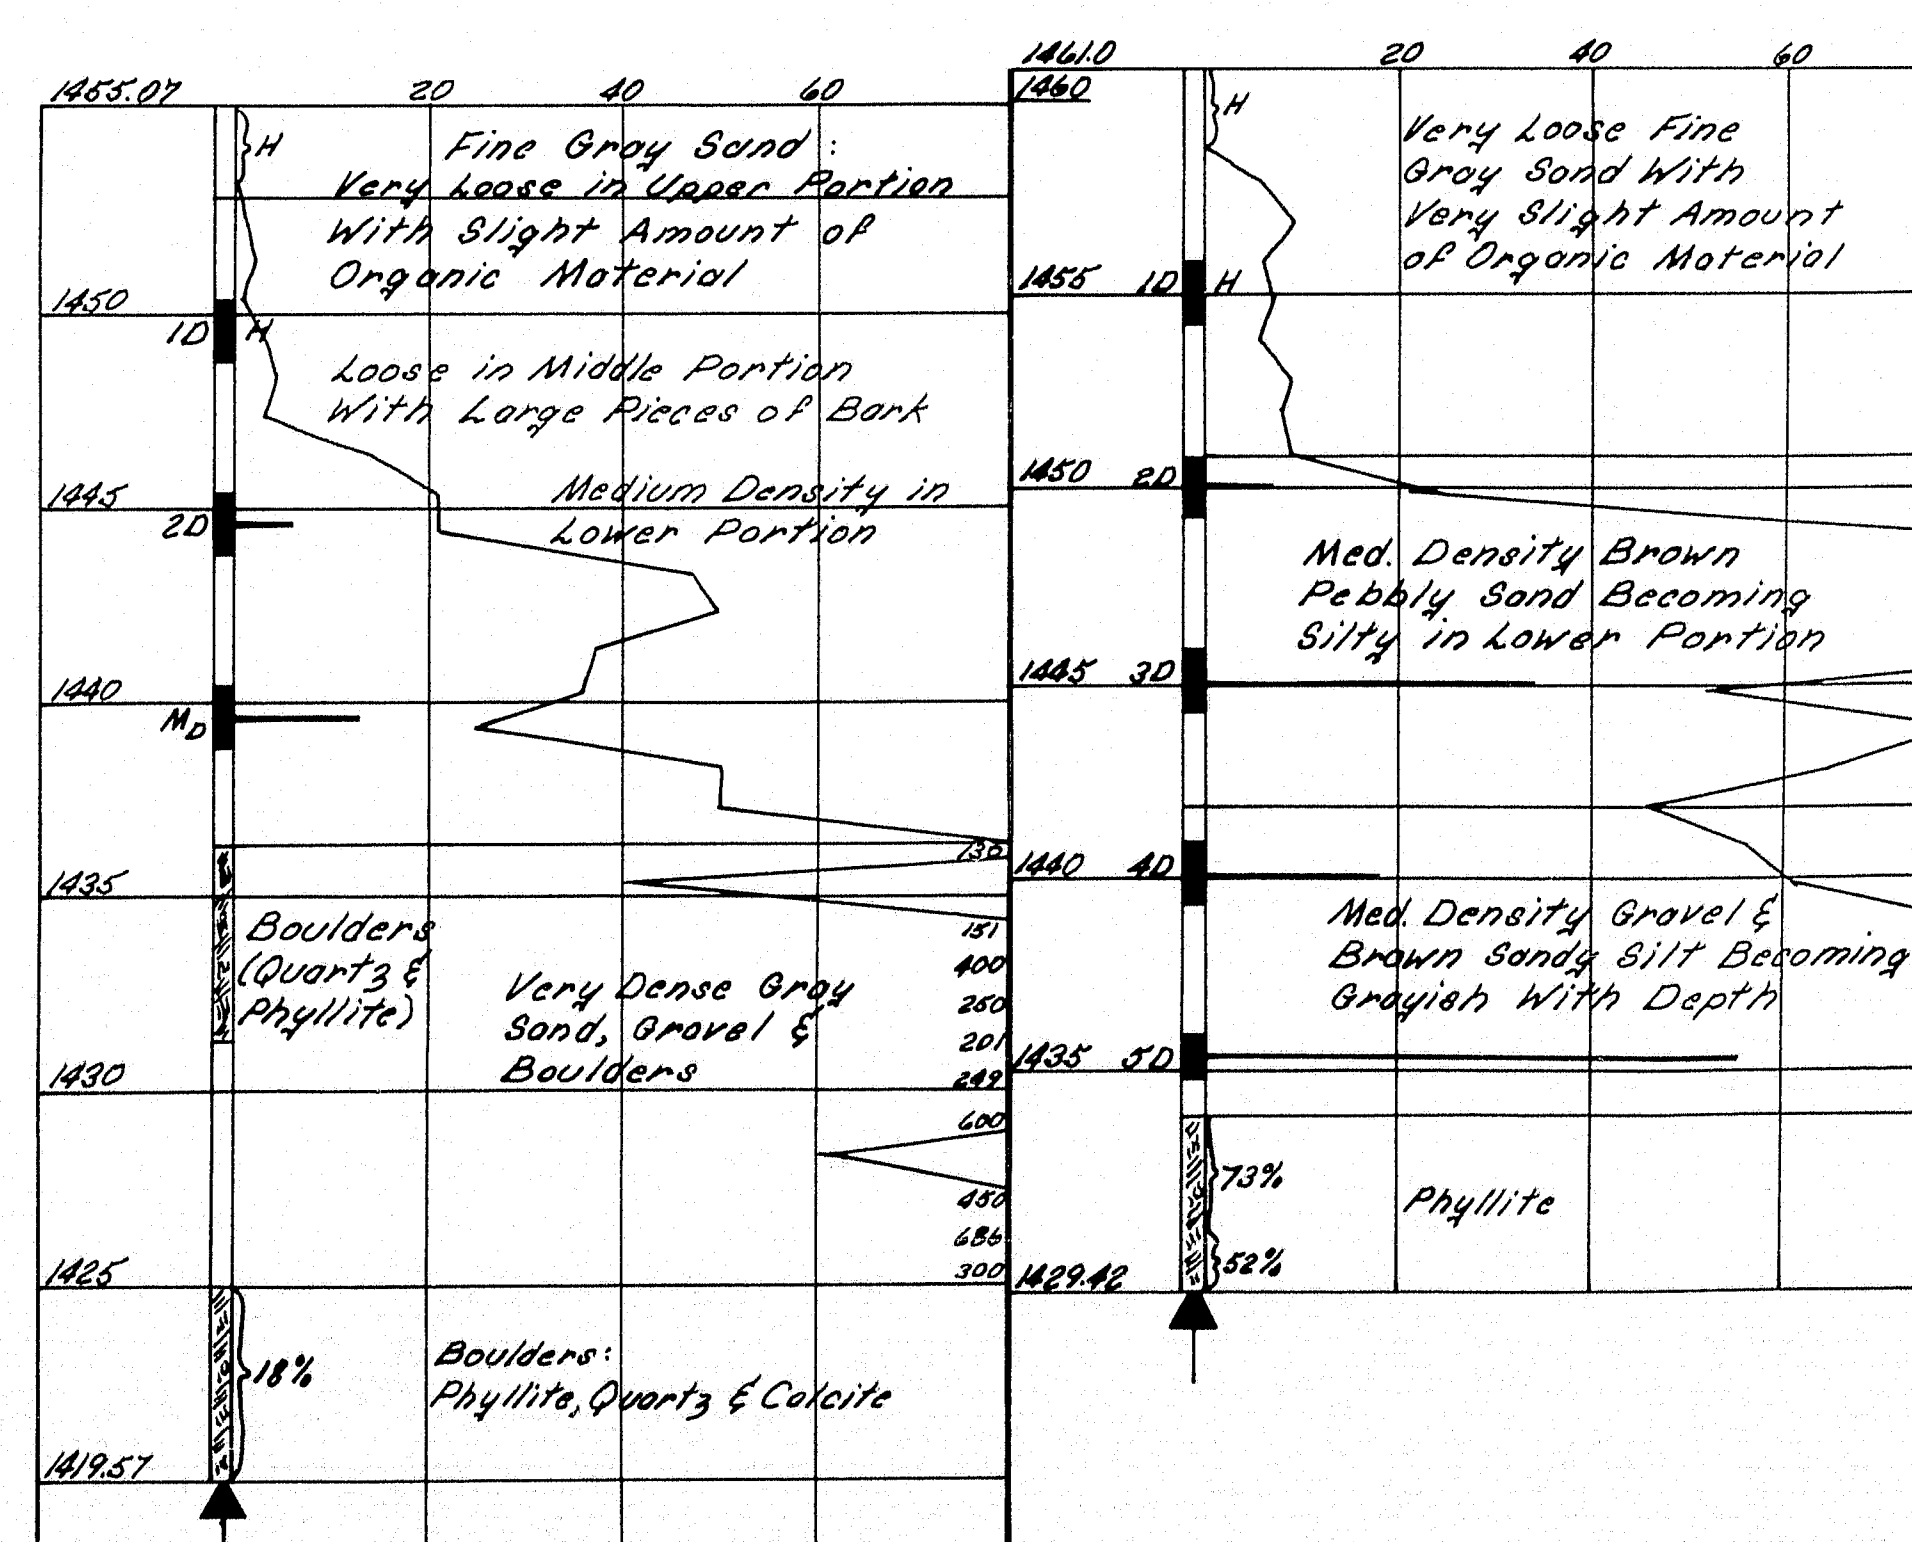 1455.07 20 40 60
H
Fine Gray Sand:
Very Loose in Upper Portion
With Slight Amount of
Organic Material
1450
1D H
Loose in Middle Portion
With Large Pieces of Bark
1445
2D
Medium Density in
Lower Portion
1440
MD
130
1435
Boulders
(Quartz &
Phyllite)
Very Dense Gray
Sand, Gravel &
Boulders
151
400
250
201
249
1430
600
450
686
300
1425
18%
Boulders:
Phyllite, Quartz & Calcite
1419.57
1461.0 20 40 60
1460
H
Very Loose Fine
Gray Sand With
Very Slight Amount
of Organic Material
1455 1D H
1450 2D
Med. Density Brown
Pebbly Sand Becoming
Silty in Lower Portion
1445 3D
1440 4D
Med. Density Gravel &
Brown Sandy Silt Becoming
Grayish With Depth
1435 5D
73%
Phyllite
52%
1429.42